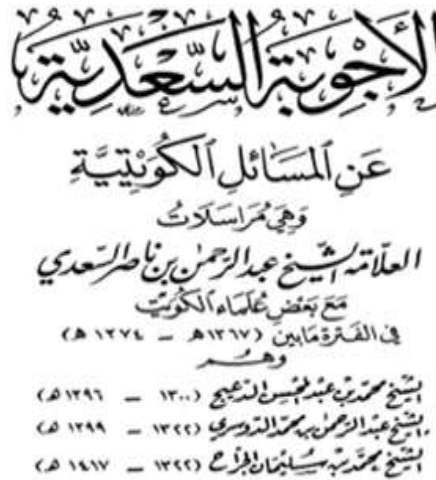 الأَجْوِبَةُ السَّعْدِيَّةُ
عَنِ المَسَائِلِ الكُوَيْتِيَّةِ
وَهِيَ مُرَاسَلَاتُ
العلّامة الشيخ عبد الرحمن بن ناصر السعدي
مَعَ بَعْضِ عُلَمَاءِ الكُوَيْتِ
في الفَتْرَةِ مَا بَيْن (١٣٦٧هـ – ١٣٧٤ هـ)
وَهُم
الشيخ محمد بن عبد المحسن الدعيج (١٣٠٠ – ١٣٩٦ هـ)
الشيخ عبد الرحمن بن محمد الدوسري (١٣٢٢ – ١٣٩٩ هـ)
الشيخ محمد بن سليمان الجراح (١٣٢٢ – ١٤١٧ هـ)